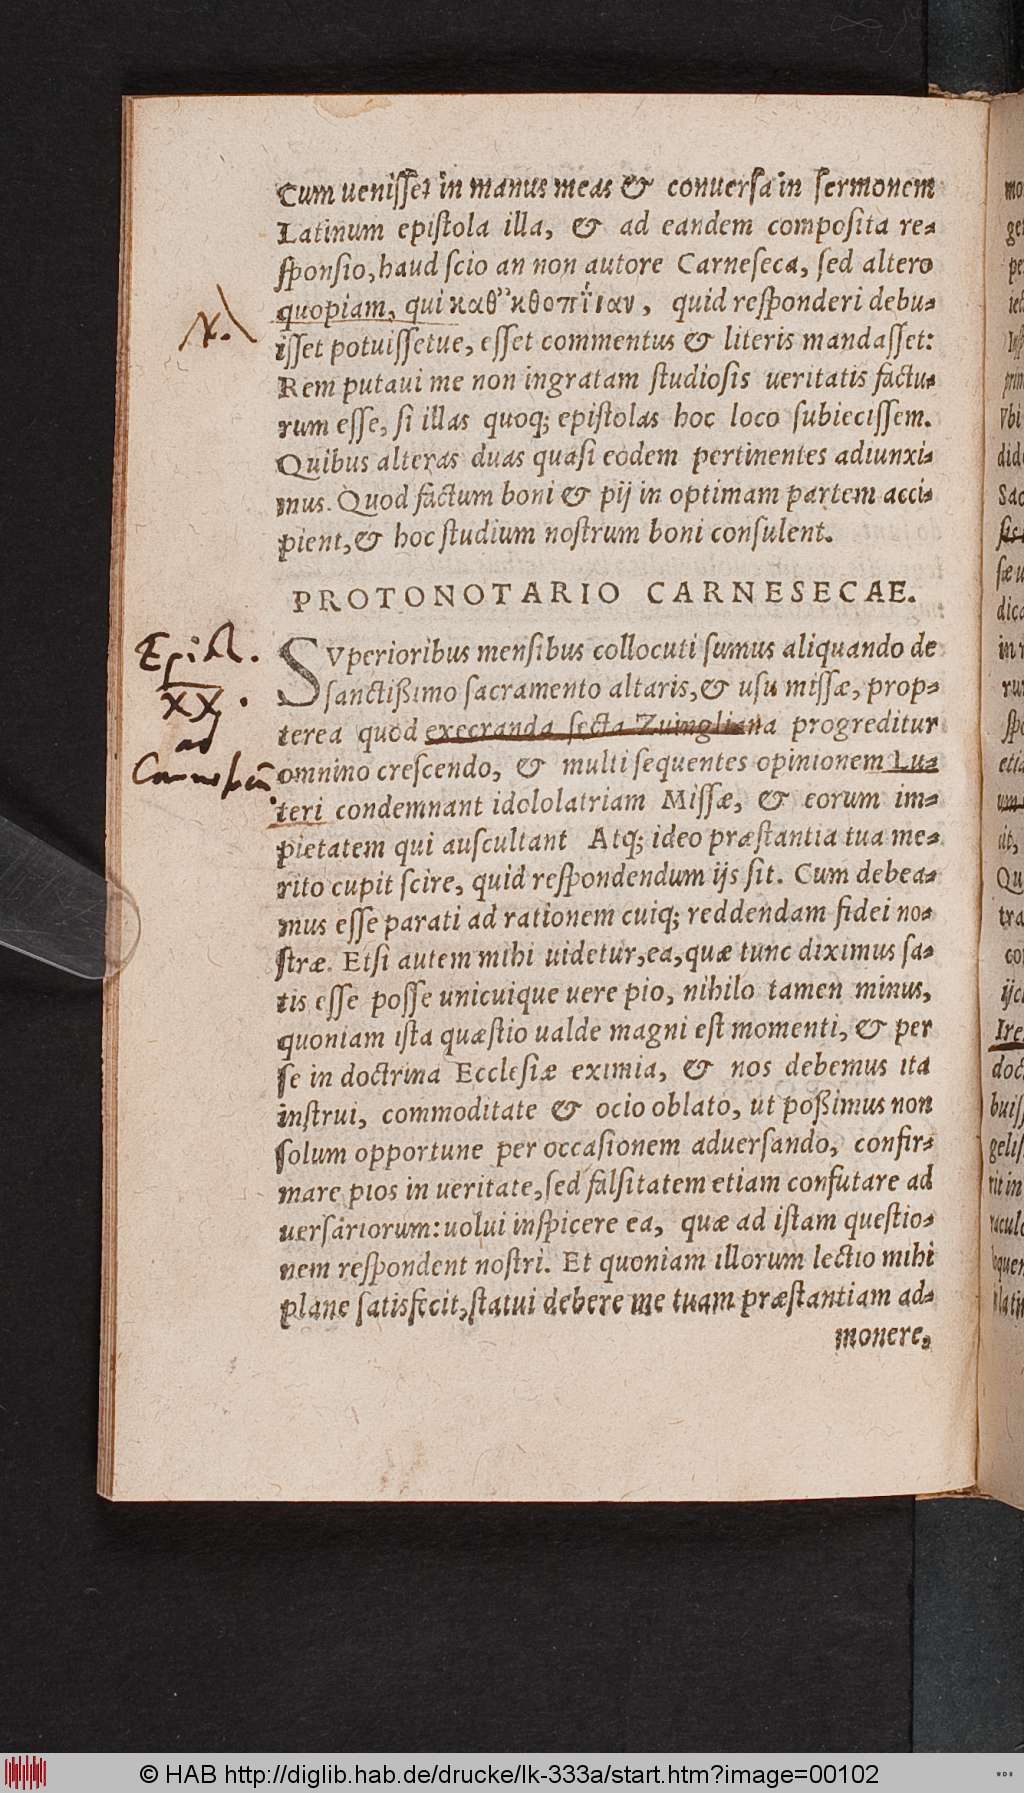 Cum uenisset in manus meas & conuersa in sermonem
Latinum epistola illa, & ad eandem composita re-
sponsio, haud scio an non autore Carneseca, sed altero
quopiam, qui quid responderi debu-
isset potuissetue, esset commentus & literis mandasset:
Rem putaui me non ingratam studiosis ueritatis factu-
rum esse, si illas quoq; epistolas hoc loco subiecissem.
Quibus alteras duas quasi eodem pertinentes adiunxi-
mus. Quod factum boni & pij in optimam partem acci-
pient, & hoc studium nostrum boni consulent.
PROTONOTARIO CARNESECAE.
Epist.
XX.
ad
SVperioribus mensibus collocuti sumus aliquando de
sanctißimo sacramento altaris, & usu missæ, prop-
terea quod execranda secta Zuingliana progreditur
omnino crescendo, & multi sequentes opinionem Lu-
teri condemnant idololatriam Missæ, & eorum im-
pietatem qui auscultant Atq; ideo præstantia tua me-
rito cupit scire, quid respondendum ijs sit. Cum debea-
mus esse parati ad rationem cuiq; reddendam fidei no-
stræ. Etsi autem mihi uidetur, ea, quæ tunc diximus sa-
tis esse posse unicuique uere pio, nihilo tamen minus,
quoniam ista quæstio ualde magni est momenti, & per
se in doctrina Ecclesiæ eximia, & nos debemus ita
instrui, commoditate & ocio oblato, ut poßimus non
solum opportune per occasionem aduersando, confir-
mare pios in ueritate, sed falsitatem etiam confutare ad
uersariorum: uolui inspicere ea, quæ ad istam questio-
nem respondent nostri. Et quoniam illorum lectio mihi
plane satisfecit, statui debere me tuam præstantiam ad-
monere,
© HAB http://diglib.hab.de/drucke/lk-333a/start.htm?image=00102